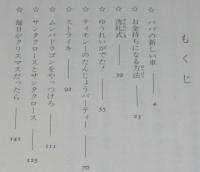 もくじ
☆ パパの新しい車 4
☆ お金持ちになる方法 23
☆ 洗礼式 39
☆ ゆうれいがでた! 55
☆ ティモシーのたんじょうパーティー 70
☆ ストライキ 92
☆ ムーンドラゴンをやっつけろ 111
☆ サンタクロースとサンタクロース 125
☆ 毎日がクリスマスだったら 141